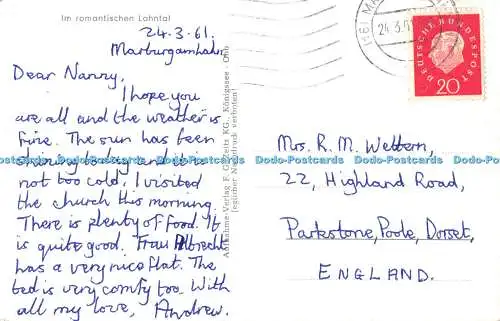 Im romantischen Lahntal
24.3.61.
Marburgamlahn
Dear Nanny,
I hope you
are all and the weather is
fine. The sun has been
shining today and it is
not too cold, I visited
the church this morning.
There is plenty of food. It
is quite good. Frau Albrecht
has a very nice flat. The
bed is very comfy too. With
all my love, Andrew.
Königssee - Obb.
24.3.
DEUTSCHE BUNDESPOST
20
Mrs. R. M. Wellern,
22, Highland Road,
Parkstone, Poole, Dorset,
ENGLAND.
Dodo-Postcards Dodo-Postcards Dodo-Postcards Dodo-Postcards Dodo-Postcards